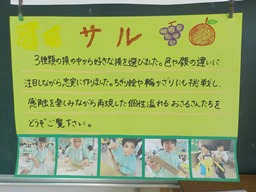 サル
3種類の猿の中から好きな猿を選びました。色や顔の違いに
注目しながら忠実に作りました。ちぎり絵や輪かざりにも挑戦し、
感触を楽しみながら再現した個性溢れるおさるさんたちを
どうぞご覧下さい。